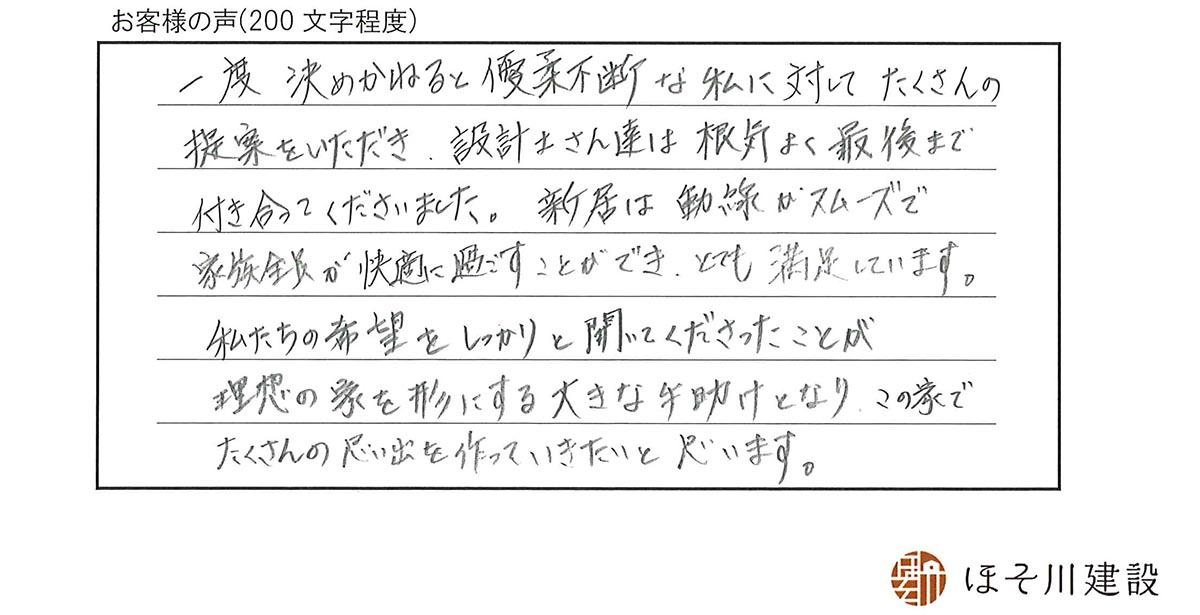 お客様の声(200 文字程度)
一度 決めかねると優柔不断な私に対して たくさんの
提案をいただき、設計士さん達は 根気よく最後まで
付き合ってくださいました。 新居は動線がスムーズで
家族全員が快適に過ごすことができ、とても満足しています。
私たちの希望をしっかりと聞いてくださったことが
理想の家を形にする大きな手助けとなり、この家で
たくさんの思い出を作っていきたいと思います。
ほそ川建設